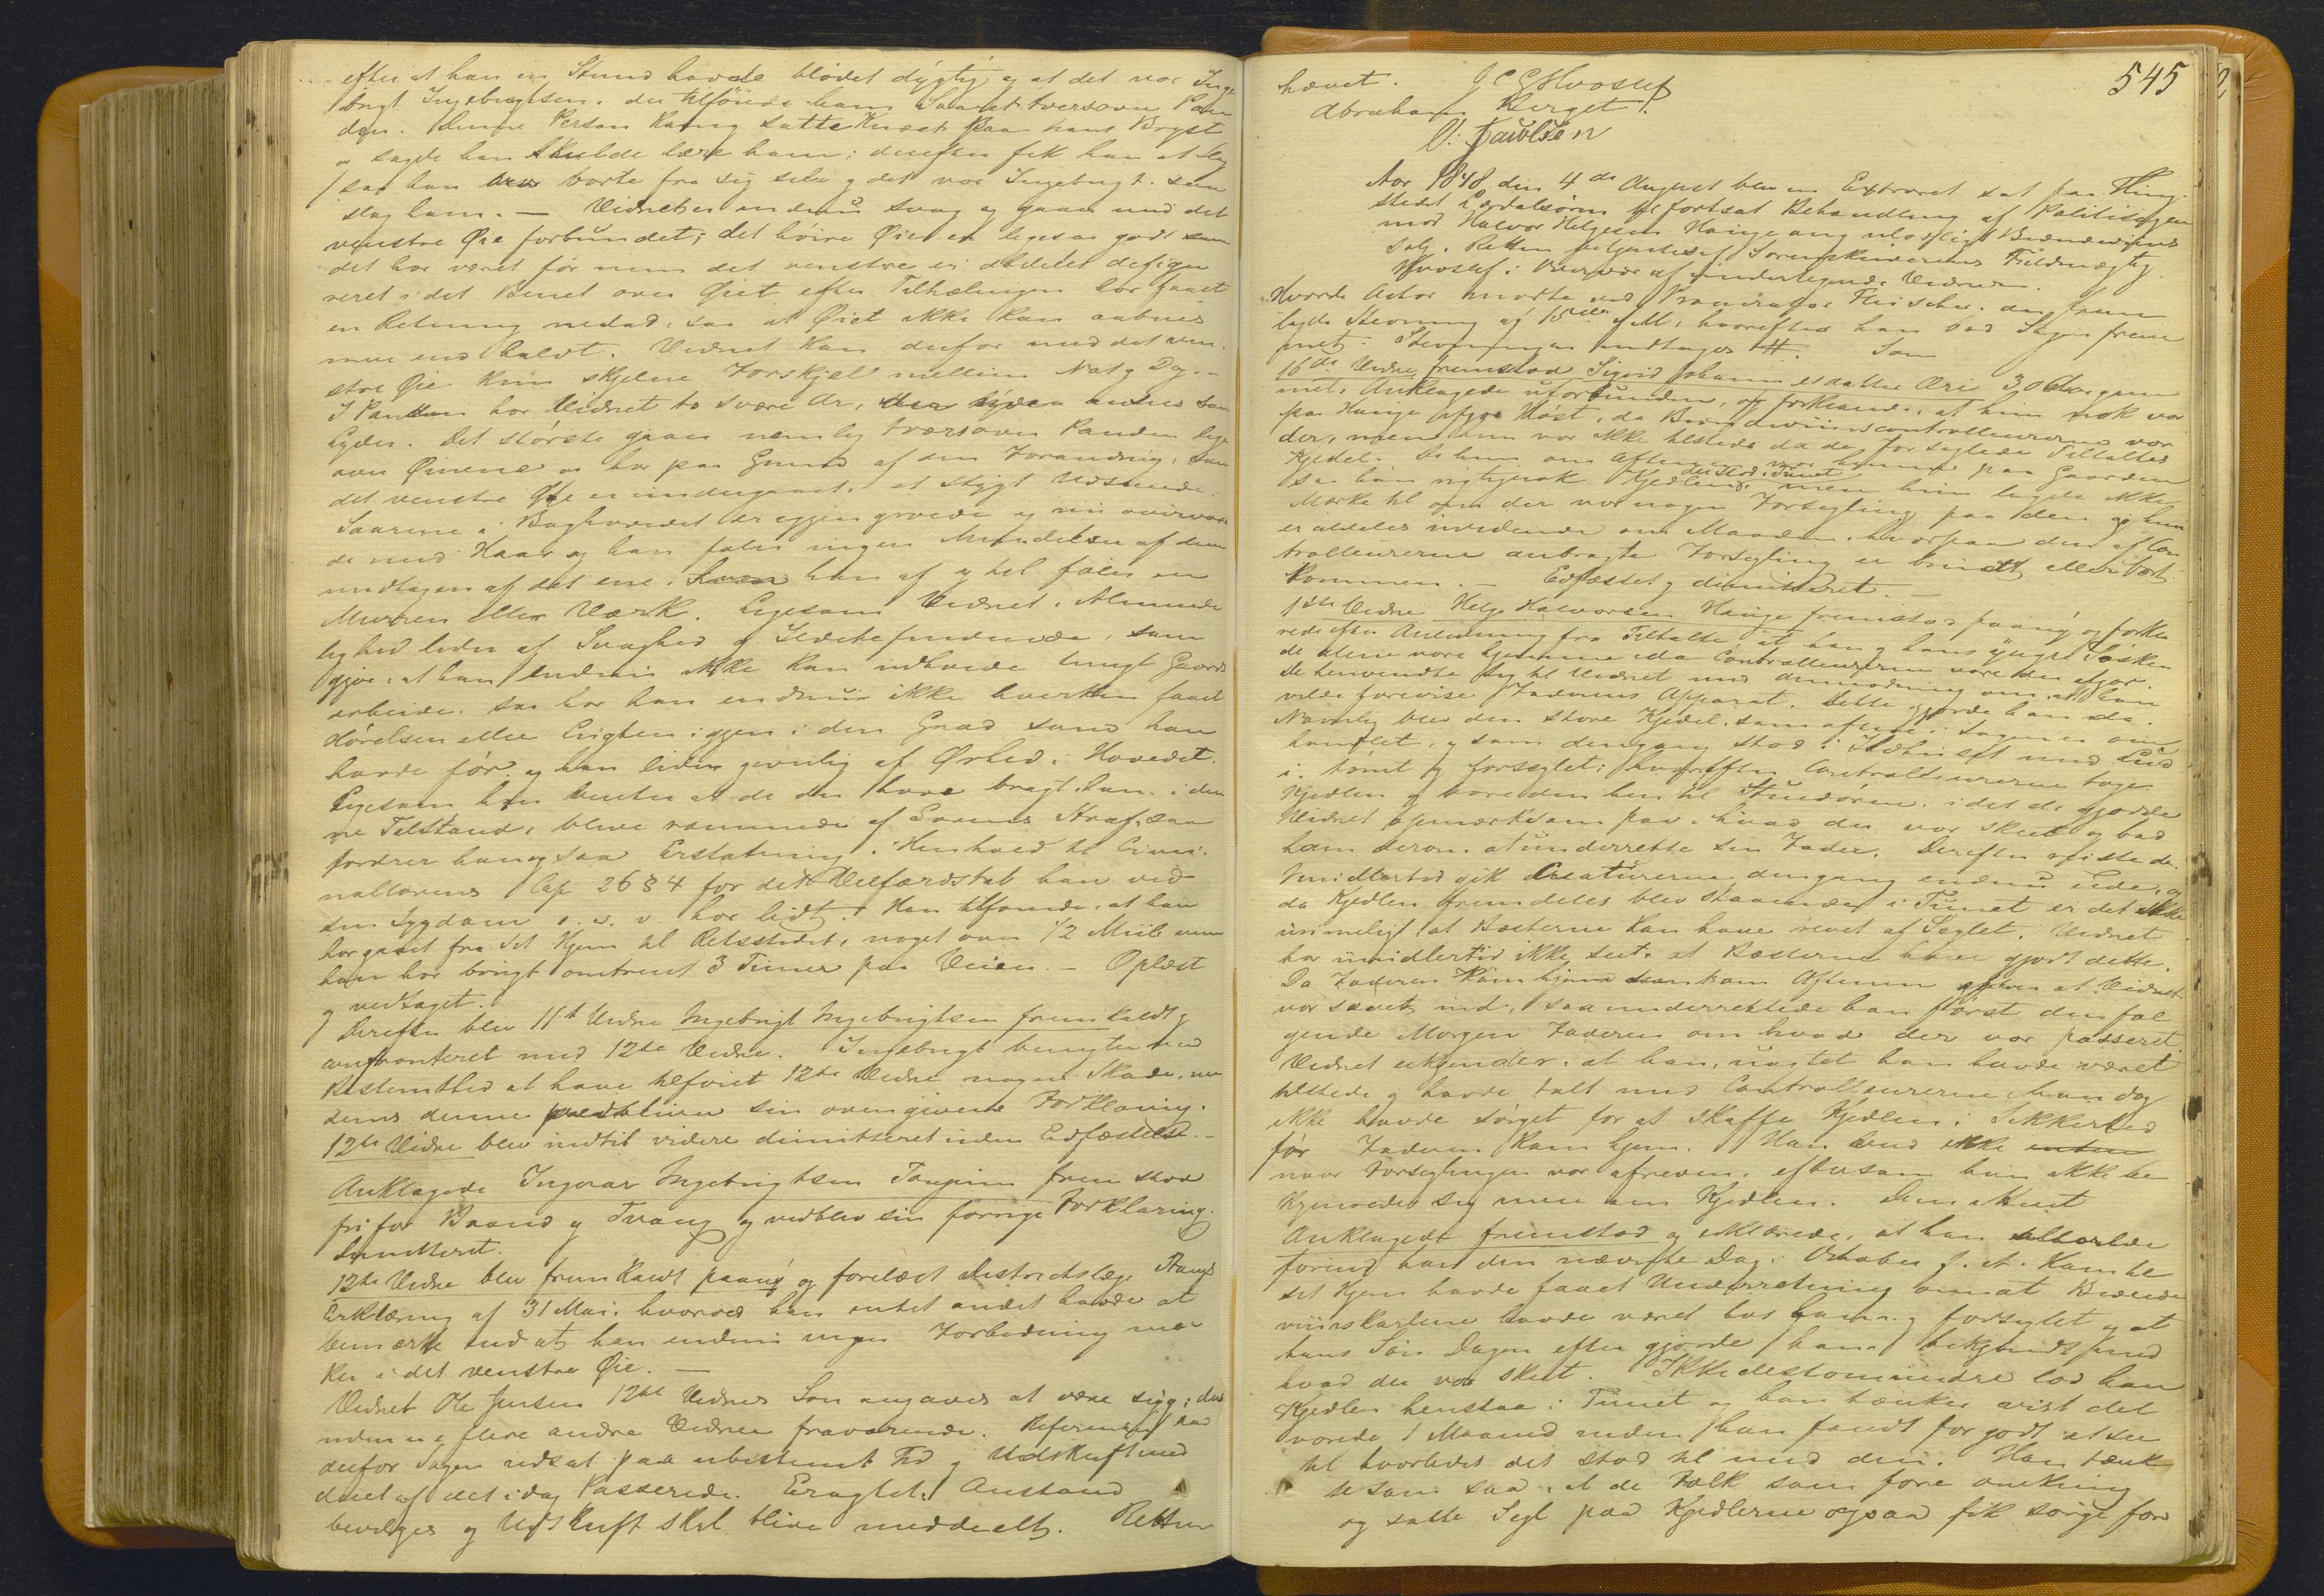 efter at han en Stund havde blödet dygtig og at det var Inge
brigt Ingebrigtsen, der tilföiede ham Saaret tversover Pan
den. Denne Person Kang satte Knæet paa hans Bryst
og sagde han skulde lære ham; derefter fik han at Slag
saa han blev borte fra sig selv og det var Ingebrigt som
slog ham. — Vidnet er endnu svag og gaar med det
venstre Øie forbundet; det höire Øie er ligesaa godt som
det har været för men det venstre er aldeles defigu
reret i det Benet over Øiet efter Tilhælingen har faaet
en Retning nedad, saa at Øiet ikke kan aabnes
mere end halvt. Vidnet kan derfor med det ven
stre Øie kun skjelne Forskjel mellem Nat og Dag. —
I Panden har Vidnet to svære Ar,
Det störste gaaer nemlig tversover Panden lige
over Øinene og har paa Grund af den Forandring, som
det venstre Øie er undergaaet, et stygt Udseende.
Saarene i Baghovedet er igjen groede og nu overvoxe
de med Haar og han föler ingen Mindelser af dem
undtagen af det ene, han af og til föler en
Murren eller Værk. Ligesom Vidnet i Alminde
lighed lider af Svaghed og Ildebefindende, som
gjör, at han endnu ikke kan udholde tungt Gaards
arbeide, saa har han endnu ikke hverken faaet
Hörelsen eller Lugten igjen i den Grad som han
havde för og han lider jevnlig af Ørhed i Hovedet.
Ligesom han venter at de der have bragt ham i den
ne Tilstand, blive rammede af Lovens Straf, saa
fordrer han ogsaa Erstatning i Henhold til Crimi
nallovens Cap 26 § 4 for det Velfærdstab han ved
sin Sygdom o. s. v. har lidt. Han tilföiede, at han
har gaaet fra sit Hjem til Retsstedet, noget over 1/2 Miil men
han har brugt omtrent 3 Timer paa Veien — Oplæst
og vedtaget.
Derefter blev 11te Vidne Ingebrigt Ingebrigtsen fremkaldt og
confronteret med 12te Vidne. Ingebrigt benægtede med
Bestemthed at have tilföiet 12te Vidne nogen Skade, me
dens denne vedbliver sin ovengivne Forklaring.
12te Vidne blev indtil videre dimitteret inden Edfæstelse. —
Anklagede Ingvar Ingebrigtsen fremstod
fri for Baand og Tvang og vedblev sin forrige Forklaring.
Dimitteret.
12te Vidne blev fremkaldt paany og forelæst Districtslæge
Erklæring af 31 Mai, hvorved han intet andet havde at
bemærke end at han endnu ingen Forbedring mær
ker i det venstre Øie. —
Vidnet Ole Jensen 12te Vidnes Sön angaves at være syg; des
uden ere flere andre Vidner fraværende. Referenten bad
derfor Sagen udsat paa ubestemt Tid og Udskrift med
deelt af det i dag Passerede. Eragtet: Anstand
bevilges og Udskrift skal blive meddeelt. Retten
545
hævet.
Abraham Berget.
O: Paulsen
Aar 1848 den 4de August blev en Extraret sat paa Thing
stedet Lærdalsören til fortsat Behandling af Politisagen
mod Halvor Helgesen Hauge ang ulovligt Brændeviins
Salg. Retten betjentes af Sorenskriverens Fuldmægtig
i Overvær af underskrevne Vidner.
Hvorda Actor mødte ved Procurator Fleischer, der frem
lagde Stevning af 15de f. M. hvorefter han bad Sagen frem
met. Stevningen indtages H. Som
16de Vidne fremstod Sigrid Johannesdatter Øri 30 Aar gam
mel, Anklagede uforbunden, og forklarede, at hun nok var
paa Hauge afvigte Höst, da Brændeviinscontrolleurerne var
der, men hun var ikke tilstede da de forseglede Tiltaltes
Kjedel. Da hun om Aftenen kom hjem paa Gaarden
saa hun rigtignok Kjedlen, der stod i Tunet men hun lagde ikke
Mærke til om der var nogen Forsegling paa den og hun
er aldeles uvidende om Maaden, hvorpaa den af Con
trolleurerne anbragte Forsegling er brudt eller bort
kommen. — Edfæstet og dimitteret. —
1ste Vidne Helge Halvorsen Hauge fremstod paany og forkla
rede efter Anledning fra Tiltalte at han og hans yngre Södsken
de alene vare hjemme da Controlleurerne vare der ifjor.
De henvendte sig til Vidnet med Anmodning om, at han
vilde forevise Faderens Apparat. Dette gjorde han da.
Navnlig blev den store Kjedel, som i Sagen er om
handlet, og som dengang stod i Ildhuset med Lud
i, tömt og forseglet; hvorefter Controlleurerne toge
Kjedlen og bare den hen til Stuedören, idet de gjorde
Vidnet opmærksom paa hvad der var skeet og bad
ham derom at underrette sin Fader. Derefter reiste de.
Imidlertid gik Creaturerne dengang endnu ude, og
da Kjedlen fremdeles blev staaende i Tunet er det ikke
urimeligt at Bæsterne kan have revet af Seglet. Vidnet
har imidlertid ikke seet, at Bæsterne have gjort dette.
Da Faderen kom hjem om Aftenen efter at Vidnet
var sovet ind, saa underrettede han först den föl
gende Morgen Faderen om hvad der var passeret.
Vidnet erkjender, at han, uagtet han havde været
tilstede og havde talt med Controlleurerne han dog
ikke havde sörget for at skaffe Kjedlen i Sikkerhed
för Faderen kom hjem. Han veed ikke
naar Forseglingen var afreven, eftersom han ikke be
kymrede sig mere om Kjedlen. Dimitteret
Anklagede fremstod og erklærede, at han
forend han den nævnte Dag i October f. A. kom til
sit Hjem havde faaet Underretning om at Brænde
viinskarlene havde været hos ham og forseglet og at
hans Sön Dagen efter gjorde ham bekjendt med
hvad der var skeet. Ikke destomindre lod han
Kjedlen henstaa i Tunet og han tænker vist det
varede 1 Maaned inden han fandt for godt at see
til hvorledes det stod til med den. Han tænk
te som saa, at de Folk som fore omkring
og satte Segl paa Kjedlerne ogsaa fik sörge for